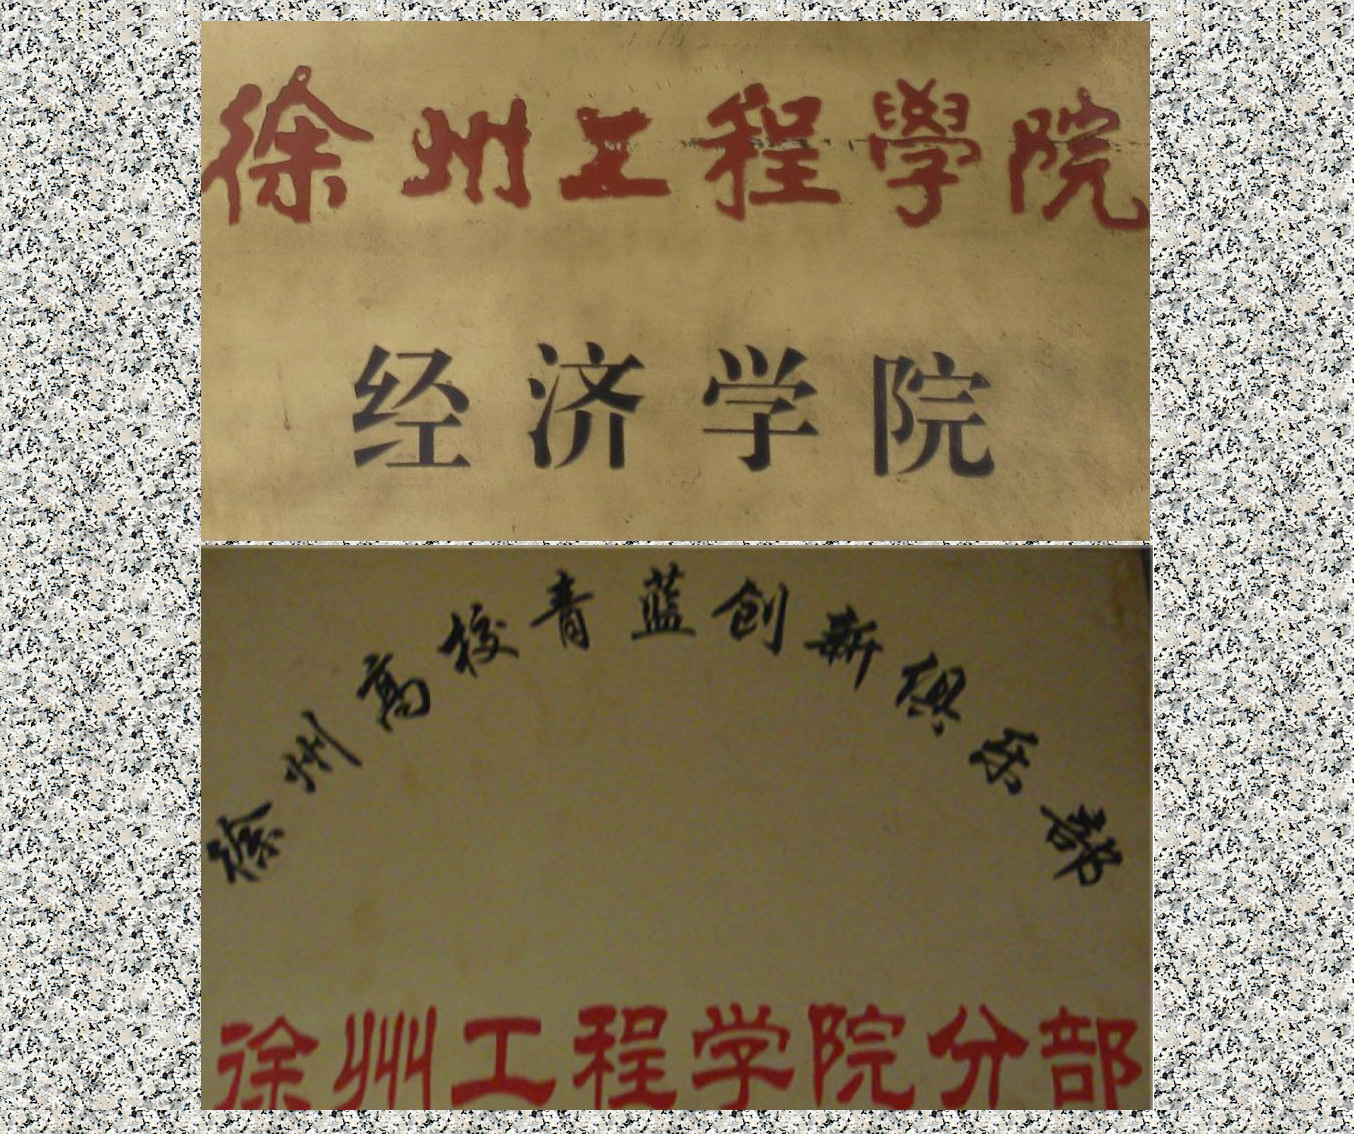 徐州工程學院
经济学院
徐州高校青蓝创新俱乐部
徐州工程学院分部